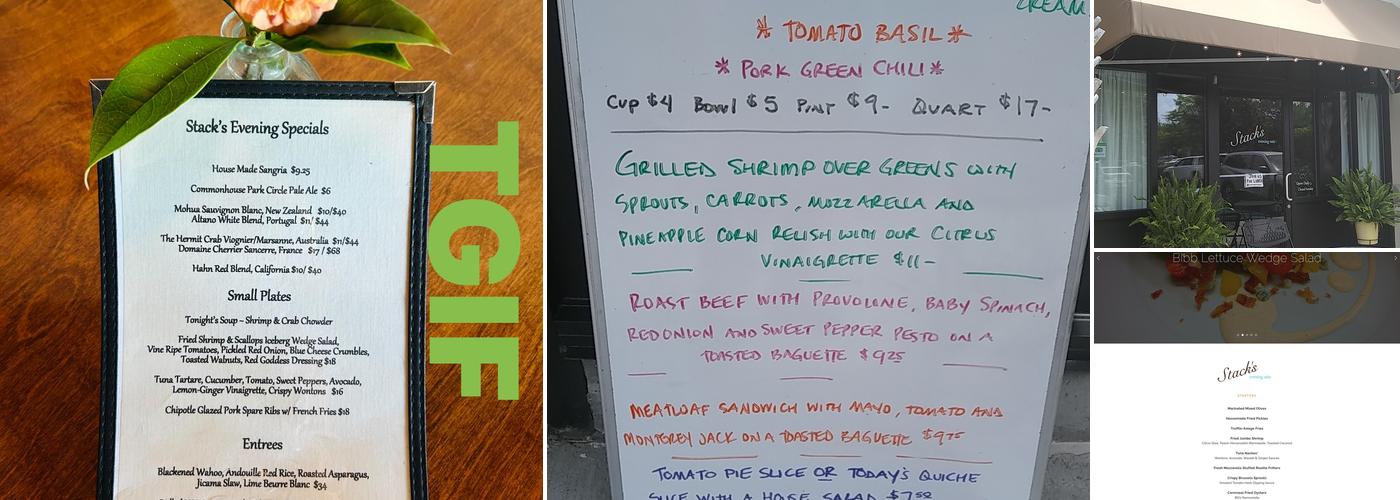 Stack's Evening Specials
House Made Sangria $9.25
Commonhouse Park Circle Pale Ale $6
Mohua Sauvignon Blanc, New Zealand $10/$40
Altano White Blend, Portugal $11/ $44
The Hermit Crab Viognier/Marsanne, Australia $11/$44
Domaine Cherrier Sancerre, France $17 / $68
Hahn Red Blend, California $10/ $40
Small Plates
Tonight's Soup ~ Shrimp & Crab Chowder
Fried Shrimp & Scallops Iceberg Wedge Salad,
Vine Ripe Tomatoes, Pickled Red Onion, Blue Cheese Crumbles,
Toasted Walnuts, Red Goddess Dressing $18
Tuna Tartare, Cucumber, Tomato, Sweet Peppers, Avocado,
Lemon-Ginger Vinaigrette, Crispy Wontons $16
Chipotle Glazed Pork Spare Ribs w/ French Fries $18
Entrees
Blackened Wahoo, Andouille Red Rice, Roasted Asparagus,
Jicama Slaw, Lime Beurre Blanc $34
TGIF
CREAM
* TOMATO BASIL *
* PORK GREEN CHILI *
Cup $4 Bowl $5 Pint $9- QUART $17-
GRILLED SHRIMP OVER GREENS WITH
SPROUTS, CARROTS, MOZZARELLA AND
PINEAPPLE CORN RELISH WITH OUR CITRUS
VINAIGRETTE $11-
ROAST BEEF WITH PROVOLONE, BABY SPINACH,
RED ONION AND SWEET PEPPER PESTO ON A
TOASTED BAGUETTE $9.25
MEATLOAF SANDWICH WITH MAYO, TOMATO AND
MONTEREY JACK ON A TOASTED BAGUETTE $9.75
TOMATO PIE SLICE OR TODAY'S QUICHE
SLICE WITH A HOUSE SALAD $7.50
Stack's
Bibb Lettuce Wedge Salad
Stack's
evening eats
STARTERS
Marinated Mixed Olives
Housemade Fried Pickles
Truffle-Asiago Fries
Fried Jumbo Shrimp
Tuna Nachos
Wontons, Avocado, Wasabi & Ginger Sauces
Fresh Mozzarella Stuffed Risotto Fritters
Crispy Brussels Sprouts
Cornmeal Fried Oysters